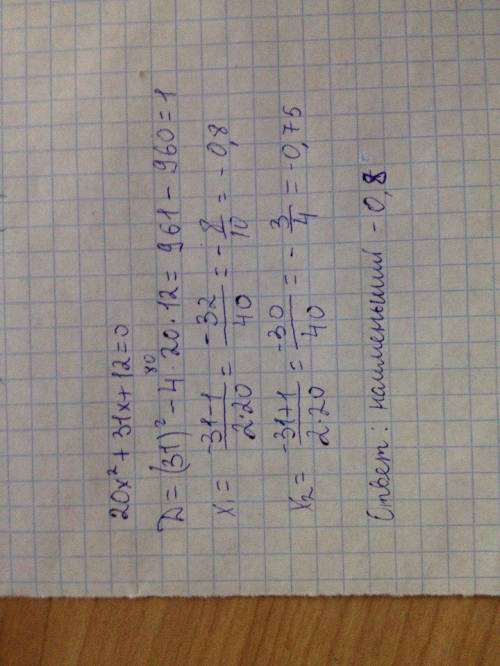 20x² + 31x + 12 = 0
D = (31)² - 4 · 20 · 12 = 961 - 960 = 1
80
x₁ = -31-1/2·20 = -32/40 = -8/10 = -0,8
x₂ = -31+1/2·20 = -30/40 = -3/4 = -0,75
Ответ: наименьший -0,8